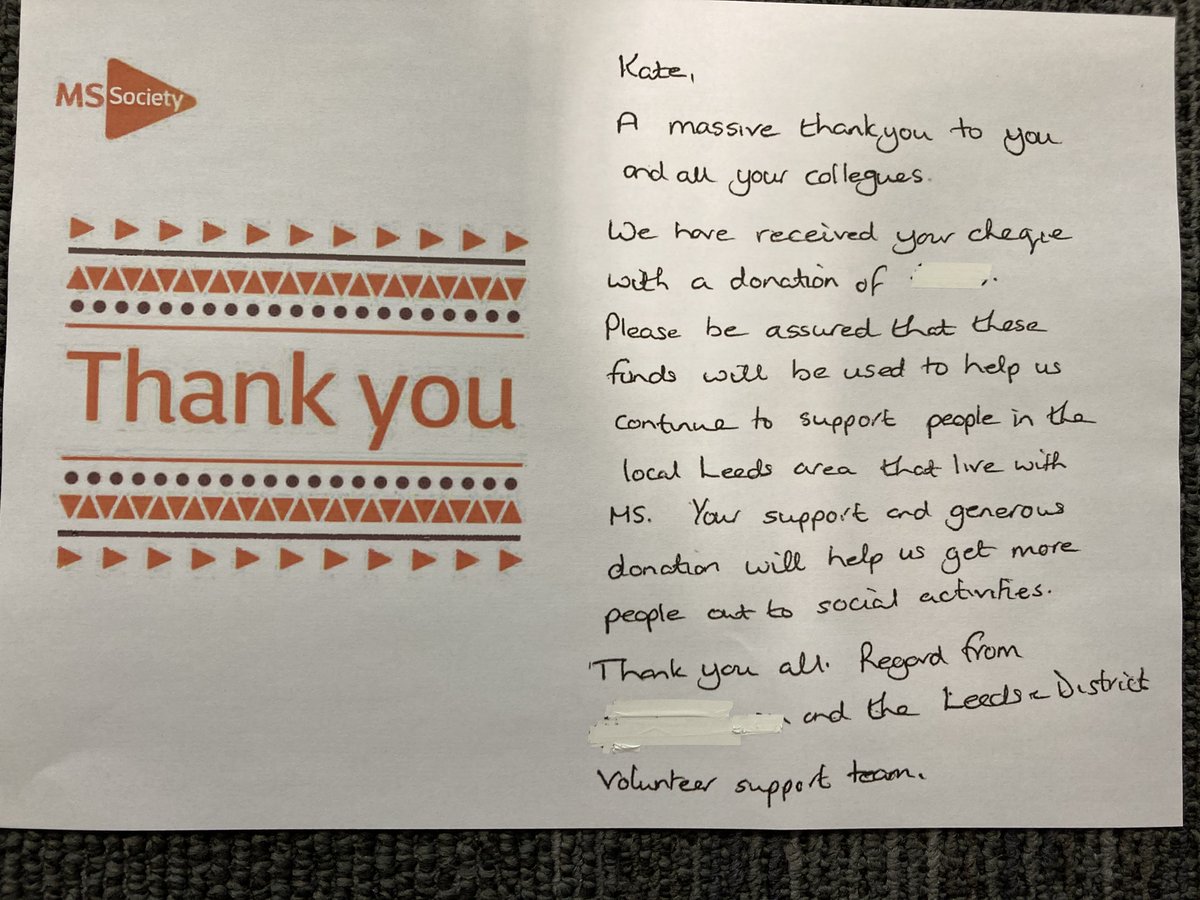 MS Society
Thank you
Kate,
A massive thankyou to you
and all your collegues.
We have received your cheque
with a donation of
Please be assured that these
funds will be used to help us
continue to support people in the
local Leeds area that live with
MS. Your support and generous
donation will help us get more
people out to social activities.
Thank you all. Regard from
and the Leeds & District
Volunteer support team.